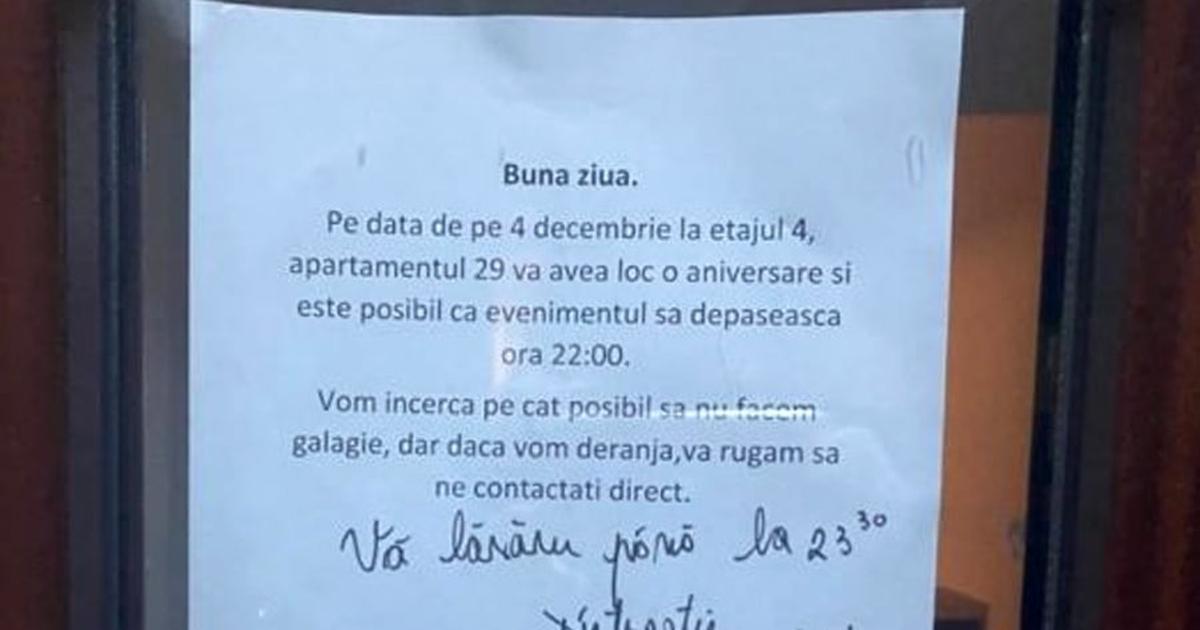 Buna ziua.
Pe data de pe 4 decembrie la etajul 4,
apartamentul 29 va avea loc o aniversare si
este posibil ca evenimentul sa depaseasca
ora 22:00.
Vom incerca pe cat posibil sa nu facem
galagie, dar daca vom deranja,va rugam sa
ne contactati direct.
Vă lăsăm până la 23 30